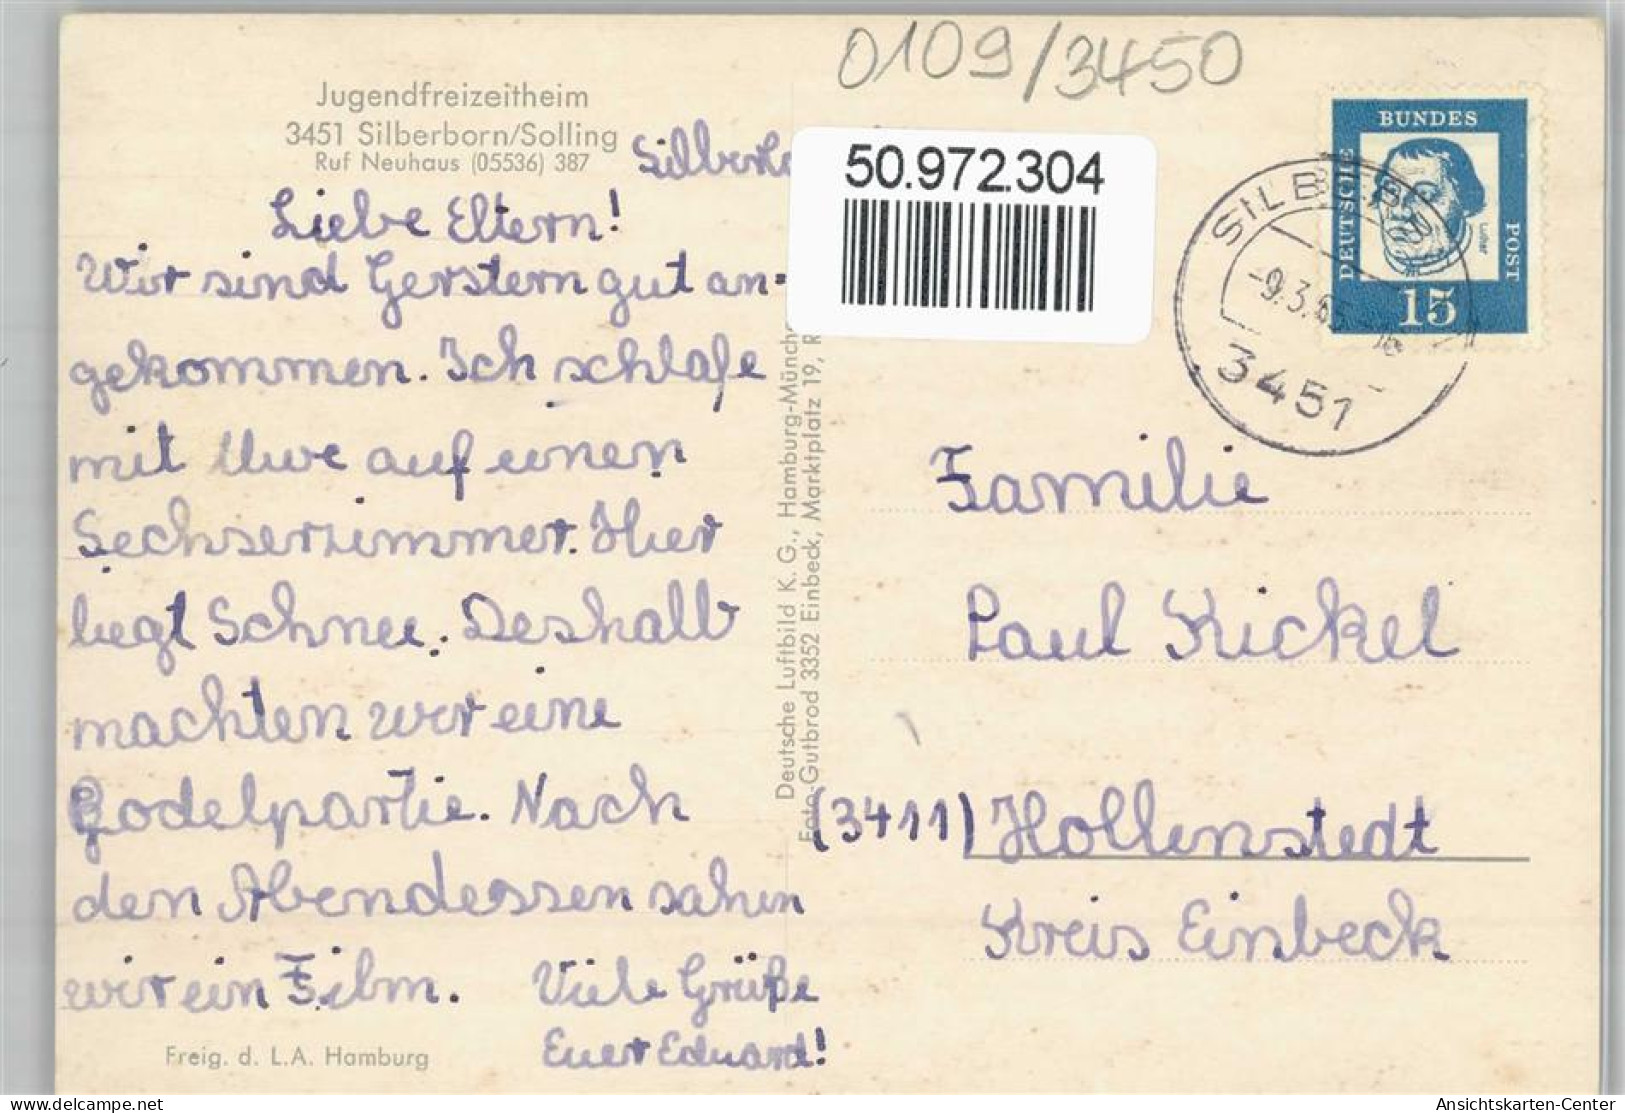 0109/3450
Jugendfreizeitheim
3451 Silberborn/Solling
Ruf Neuhaus (05536) 387
50.972.304
DEUTSCHE
BUNDES
POST
Luther
15
SILBERBORN
-9.3.6
3451
Liebe Eltern!
Wir sind Gerstern gut an-
gekommen. Ich schlafe
mit Uwe auf einen
Sechserzimmer. Hier
liegt Schnee. Deshalb
machten wir eine
Rodelpartie. Nach
den Abendessen sahen
wir ein Film. Viele Grüße
Euer Eduard!
Freig. d. L.A. Hamburg
Deutsche Luftbild K. G., Hamburg-Münche
Foto-Gutbrod 3352 Einbeck, Marktplatz 19, R
Familie
Paul Kickel
(3411) Hollenstedt
Kreis Einbeck
www.delcampe.net
Ansichtskarten-Center